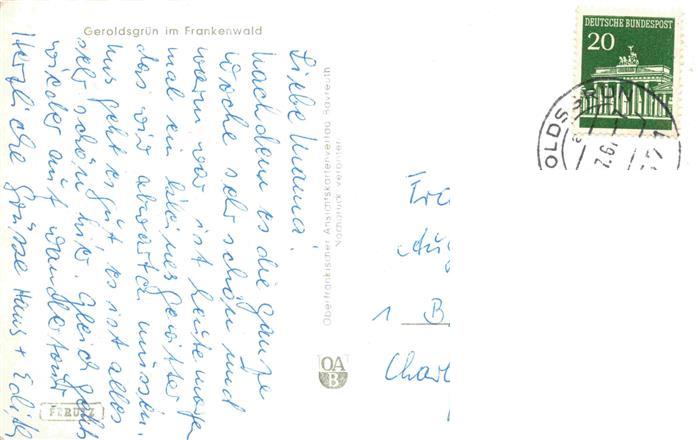 Geroldsgrün im Frankenwald
Liebe Mama!
Nachdem es die ganze
Woche sehr schön und
warm war ist heute
mal ein kleines Gewitter
das wir abwarten müssen.
Uns geht es gut es ist alles
sehr schön hier. Gleich geht
wieder auf
Herzliche Grüsse Hans + Edith
Oberfränkischer Ansichtskartenverlag Bayreuth
Nachdruck verboten
OA
B
DEUTSCHE BUNDESPOST
20
OLDS
1 B
Charl